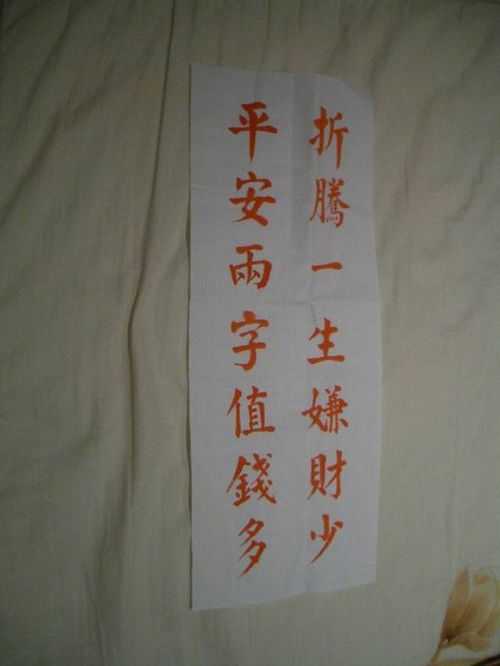 折騰一生嫌財少
平安兩字值錢多